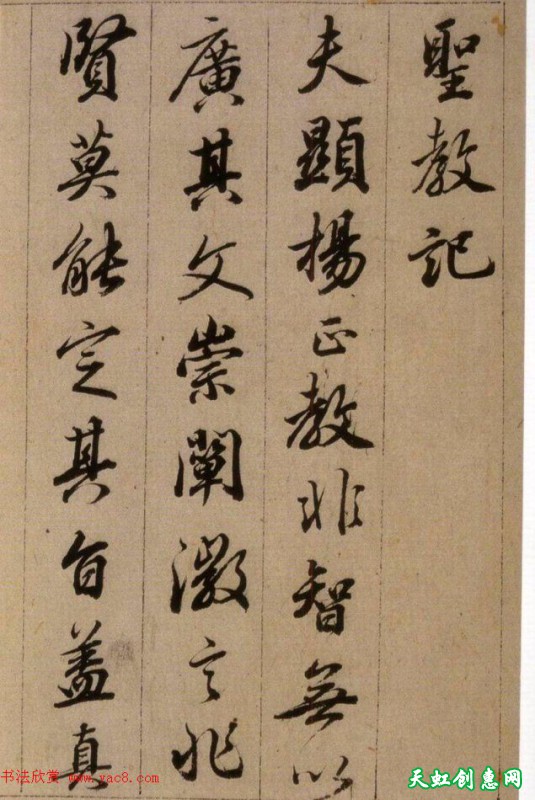 聖教記
夫顯揚正教非智無以
廣其文崇闡微言非
賢莫能定其旨蓋真
书法欣赏 www.yac8.com
天虹创惠网